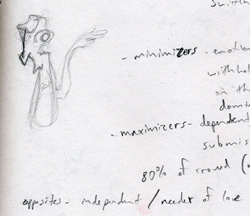 switch
- minimizers - emotion
withhol
on th
domin
- maximizers - dependent
submis
80% of crowd (
opposites - independent / needer of love